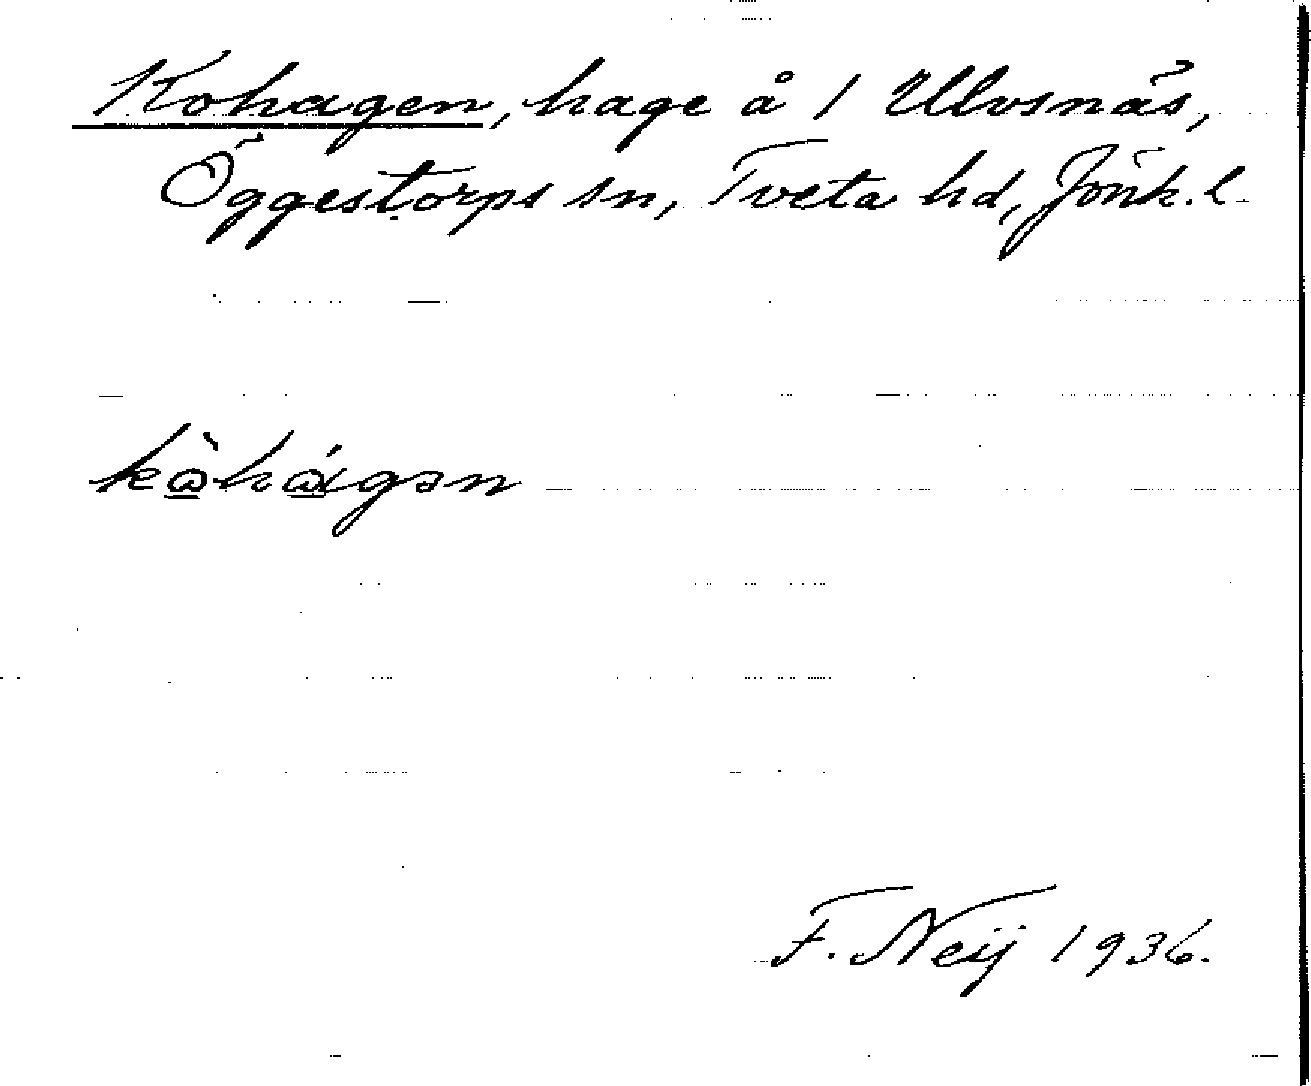 Kohagen, hage å 1 Ulvsnäs,
Öggestorps sn, Tveta hd, Jönk. l.
kòhágən
F. Neij 1936.